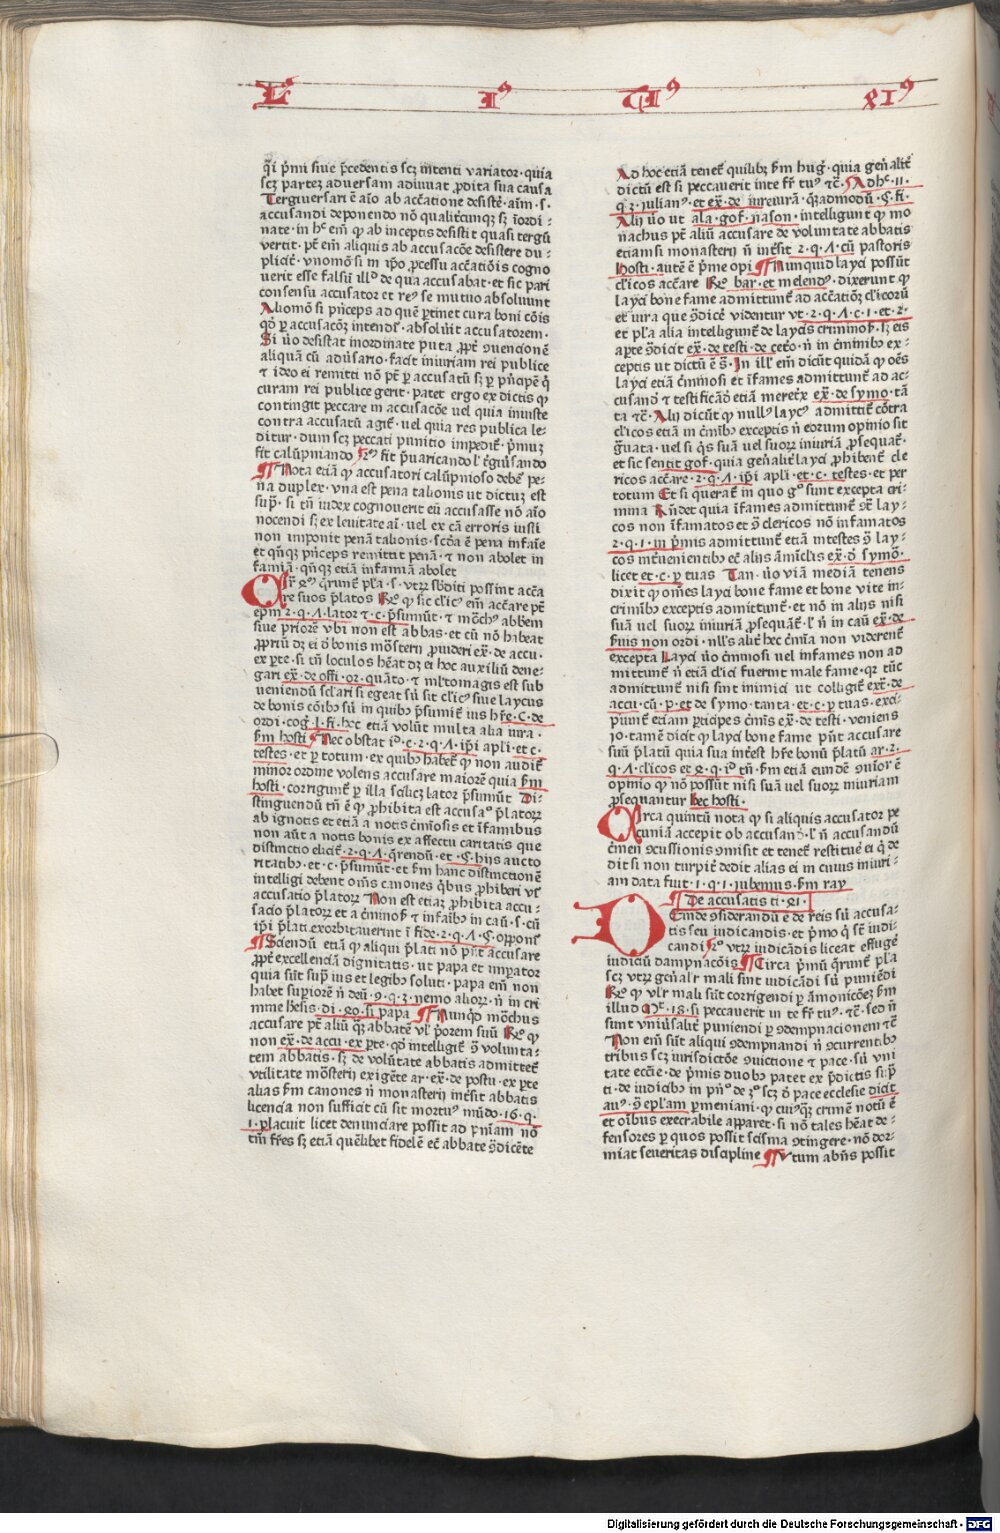 L 1⁹ T 1⁹ XI⁹
q̄i pͥmi siue p̄cedentis scꝫ intenti variator · quia
scꝫ partez aduersam adiuuat ꝓdita sua causa
Tergiuersari ē aīo ab accatione desistē · aūm · s ·
accusandi deponendo nō qualitcunqꝫ sꝫ īordi ⸗
nate · in hͨ em̄ ꝙ ab inceptis desistit quasi tergū
vertit · pt̄ em̄ aliquis ab accusacōe desistere du ⸗
plicit̄ · vnomō si in ipō ꝓcessu accatiōis cogno
uerit esse falsū illᵈ de qua accusabat · et sic pari
consensu accusator et reꝰ se mutuo absoluunt
Aliomō si pͥnceps ad quē ꝑtinet cura boni cōis
qd̄ ꝑ accusacōꝫ intendit̄ · absoluit accusatorem ·
Si ūo desistat inordinate puta ꝓpt̄ ꝯuencionē
aliquā cū aduīsario · facit iniuriam rei publice
⁊ ideo ei remitti nō pt̄ ꝑ accusatū sꝫ ꝑ pͥncipē q̄
curam rei publice gerit · patet ergo ex dictis ꝙ
contingit peccare in accusacōe uel quia iniuste
contra accusatū agit̄ · vel quia res publica le ⸗
ditur · dum scꝫ peccati punitio impedit̄ · pͥmuꝫ
fit calūpniando 2ᵐ fit p̄uaricando ł t̄giūsando
¶ Nota etiā ꝙ accusatori calūpnioso debet̄ pe ⸗
na duplex · vna est pena talionis ut dictuꝫ est
supͣ · si tn̄ iudex cognouerit eū accusasse nō aīo
nocendi sꝫ ex leuitate aī · vel ex cā erroris iusti
non imponit penā talionis · scd̄a ē pena infaīe
et qn̄qꝫ pͥnceps remittit penā · ⁊ non abolet in
famiā · qn̄qꝫ etiā infamiā abolet
Circͣ 4ᵐ q̄runt̄ pl̄a · s · vtrꝫ sb̄diti possint accā
re suos p̄latos Rͦ ꝙ sic clicꝰ em̄ accāre pt̄
ep̄m 2 · q · Λ · lator ⁊ · c · p̄sumūt · ⁊ mōchꝰ abb̄em
siue priorē vbi non est abbas · et cū nō habeat
ꝓpriū dꝫ ei ꝺ̄ bonis mōsterij ꝓuideri ex̄ · de accu ·
ex ꝑte · si tn̄ loculos hēat dꝫ ei hoc auxiliū dene ⸗
gari ex̄ · de offi · or · quāto · ⁊ ml̄tomagis est sub
ueniendū sclāri si egeat sū sit clicꝰ siue laycus
de bonis cōibꝰ sū in quibꝰ p̄sumit̄ ius hr̄e · C · de
ordi · cog · l · fi · hec etiā volūt multa alia iura ·
sm̄ hosti ¶ Nec obstat iᵈ · c · 2 · q · Λ · ipi apli · et c ·
testes · et ꝑ totum · ex quibꝰ habet̄ ꝙ non audit̄
minor ordine volens accusare maiorē quia sm̄
hosti · corrigunt̄ ꝑ illa scilicꝫ lator p̄sumūt Di ⸗
stinguendū tn̄ ē ꝙ ꝓhibita est accusaͦ p̄latoꝝ
ab ignotis et etiā a notis cīmōsis et īfamibus
non aūt a notis bonis ex affectu caritatis que
distinctio elicit̄ · 2 · q · Λ · q̄rendū · et · §· hijs aucto
ritatibꝰ · et · c · p̄sumūt · et sm̄ hanc distinctionē
intelligi debent om̄s canones q̄bus ꝓhiberi vr̄
accusatio p̄latoꝝ Non est etiaꝫ ꝓhibita accu ⸗
sacio p̄latoꝝ et a cīminosͣ ⁊ infaibꝰ in caū · s · cū
ipi p̄lati exorbitauerint ī fide · 2 · q · Λ · §· oppont̄
¶ Sciendū etiā ꝙ aliqui p̄lati nō pn̄t accusare
ꝓpt̄ excellenciā dignitatis · ut papa et impator
quia sūt supͣ ius et legibꝰ soluti · papa em̄ non
habet supiorē n̄ deū · 9 · q · 3 · nemo alioꝝ · n̄ in cri
mine h̄esis · di · 40 · si papa ¶ Nunqͥd mōchus
accusare pt̄ aliū qꝫ abbatē vl̄ pͥorem suū Rͦ ꝙ
non ex̄ · de accu · ex ꝑte · qd̄ intelligit̄ ꝯ̄ volunta ⸗
tem abbatis · sꝫ de volūtate abbatis admittet̄
vtilitate mōsterij exigēte ar · ex̄ · de postu · ex ꝑte
alias sm̄ canones n̄ monasterij int̄sit abbatis
licencia non sufficit cū sit mortuꝰ mūdo · 16 · q ·
1 · placuit licet denunciare possit ad pn̄iam nō
tm̄ fr̄es sꝫ etiā quēlibet fidelē ec̄ abbate ꝯ̄dicēte
Ad hoc etiā tenet̄ quilibꝫ sm̄ hug̉ · quia gen̄alit̄
dictū est si peccauerit inte fr̄ tuꝰ ⁊c̄ · ¶ Ad hͨ · 11 ·
q · 3 · julianꝰ · et ex̄ · de iureiurā · qͣadmodū · § · fi ·
Alij ūo ut ala · gof · nason · intelligunt ꝙ mo
nachus pt̄ aliū accusare de voluntate abbatis
etiamsi monasterij n̄ int̄sit 2 · q · Λ · cū pastoris
hosti · autē ē pͥme opi ¶ Nunquid layci possūt
clicos accāre Rͦ bar · et melendꝰ · dixerunt ꝙ
layci bone fame admittunt̄ ad accatiōꝫ clicorū
et iura que ꝯ̄dicē videntur vt · 2 · q · Λ · c · 1 · et · 2 ·
et pl̄a alia intelligunt̄ de laycis criminosͣ · sꝫ eis
aꝑte ꝯ̄dicit ex̄ · de testi · de cet̄o · n̄ in cīmibꝰ ex ⸗
ceptis ut dictū ē s̄ · In illꝰ em̄ dicūt quidā ꝙ oēs
layci etiā cīmosi et īfames admittunt̄ ad ac ⸗
cusandͣ ⁊ testificādͣ etiā meret̄x ex̄ · de symo · tā
ta ⁊c̄ · Alij dicūt ꝙ nullꝰ laycꝰ admittit̄ cōtra
clicos etiā in cīmibꝰ exceptis n̄ eorum opinio sit
g̃uata · vel si qͥs suā vel suoꝝ iniuriā ꝓsequat̄ ·
et sic sentit gof · quia gen̄alit̄ layci ꝓhibent̄ cle
ricos accāre · 2 · q · Λ · ipi apli · et · c · testes · et per
totum Et si querat̄ in quo gͦ sunt excepta cri ⸗
mina Rn̄det quia īfames admittunt̄ ꝯt̄ lay ⸗
cos non īfamatos et ꝯ̄ clericos nō infamatos
2 · q · 1 · in pͥmis admittunt̄ etiā intestes ꝯ̄ lay ⸗
cos int̄uenientibꝰ ec̄ alijs am̄iclis ex̄ · ꝺ̄ symō ·
licet et · c · ꝑ tuas Tan · ūo viā mediā tenens
dixit ꝙ omēs layci bone fame et bone vite in
criminibꝰ exceptis admittunt̄ · et nō in alijs nisi
suā vel suoꝝ iniuriā ꝓsequant̄ · ł n̄ in caū ex̄ · de
sn̄ijs non ordi · nlls̄ alit̄ hec cīmia non viderent̄
excepta Layci ūo cīmosi uel infames non ad
mittunt̄ n̄ etiā clici fuerint male fame · qꝛ tūc
admittunt̄ nisi sint inimici ut colligit̄ ext̄ · de
accu · cū · p · et de symo · tanta · et · c · ꝑ tuas · exci ⸗
piunt̄ etiam ꝑticipes cīmis ex̄ · de testi · veniens
jo · tamē dicit ꝙ layci bone fame pn̄t accusare
suū p̄latū quia sua int̄est hr̄e bonū p̄latū ar · 2 ·
q · Λ · clicos et 8 · q · iᵈ tn̄ · sm̄ etiā eundē ꝯ̄uior ē
opinio ꝙ nō possūt nisi suā uel suoꝝ iniuriam
ꝓsequantur hec hosti ·
Circa quintū nota ꝙ si aliquis accusator pe
cuniā accepit ob accusandͣ · ł n̄ accusandū
cīmen ꝯ̄cussionis ꝯmisit et tenet̄ restituē ei q̄ de
dit si non turpit̄ dedit alias ei in cuius iniuri ⸗
am data fuit · 1 · q · 1 · iubemus · sm̄ ray
¶ De accusatis ti · XI ·
Deinde ꝯsiderandū ē de reis sū accusa ⸗
tis seu iudicandis · et pͥmo q̄ sīt iudi ⸗
candi 2ͦ vtrꝫ iudicādis liceat effugē
iudiciū dampnacōis ¶ Circa pͥmū q̄runt̄ pl̄a
scꝫ vtrꝫ gen̄alr̄ mali sint iudicādi sū puniēdi
Rͦ ꝙ vlr̄ mali sūt corrigendi ꝑ āmonicōeꝫ sm̄
illud Mͭ · 18 · si peccauerit in te fr̄ tuꝰ · ⁊c̄ · sed n̄
sunt vniūsalit̄ puniendi ꝑ ꝯdempnacionem ⁊c̄
Non em̄ sūt aliqui ꝯdempnandi n̄ ꝯcurrentibꝰ
tribus scꝫ iurisdictōe ꝯuictione ⁊ pace · sū vni
tate eccīe · de pͥmis duobꝰ patet ex p̄dictis supͣ
ti · de iudicibꝰ in pn̄ͦ de 3ͦ scꝫ ꝺ̄ pace ecclesie dicit
auꝰ · ꝯ̄ epl̄am ꝑmeniani · ꝙ cuiꝰqꝫ crimē notū ē
et oībus execrabile apparet · si nō tales hēat de ⸗
fensores ꝑ quos possit scisma ꝯtingere · nō dor ⸗
miat seueritas discipline ¶ Vtum abn̄s possit
Digitalisierung gefördert durch die Deutsche Forschungsgemeinschaft - DFG